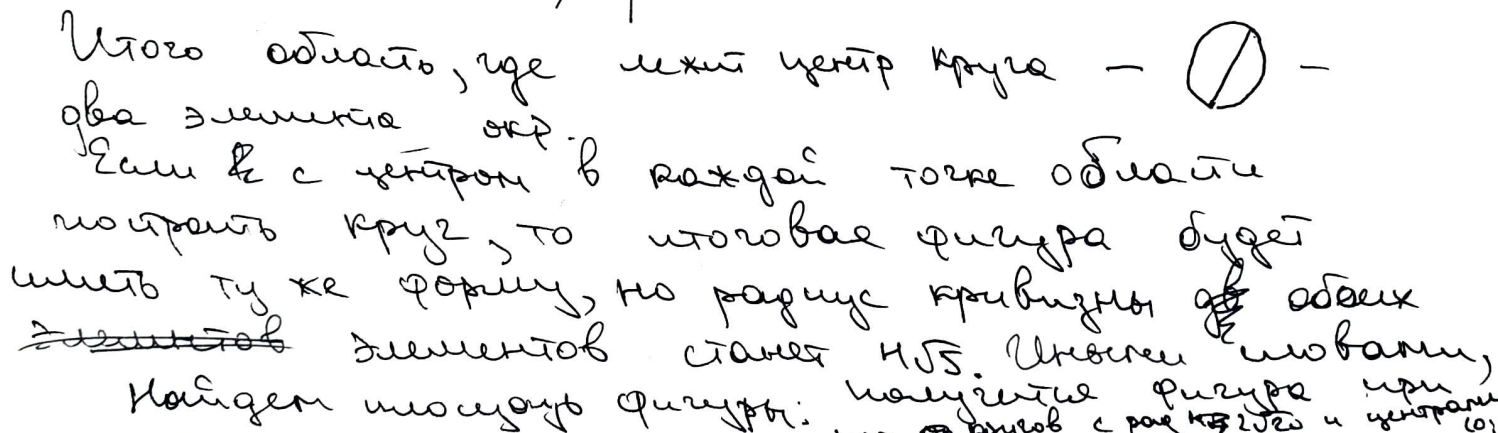 Итого область, где лежит центр круга — —
два элемента окр.
Если с центром в каждой точке области
построить круг, то итоговая фигура будет
иметь ту же форму, но радиус кривизны обоих
элементов станет 4√5. Иными словами,
Найдем площадь фигуры: получится фигура при
кругов с рад 2√20 и центрами